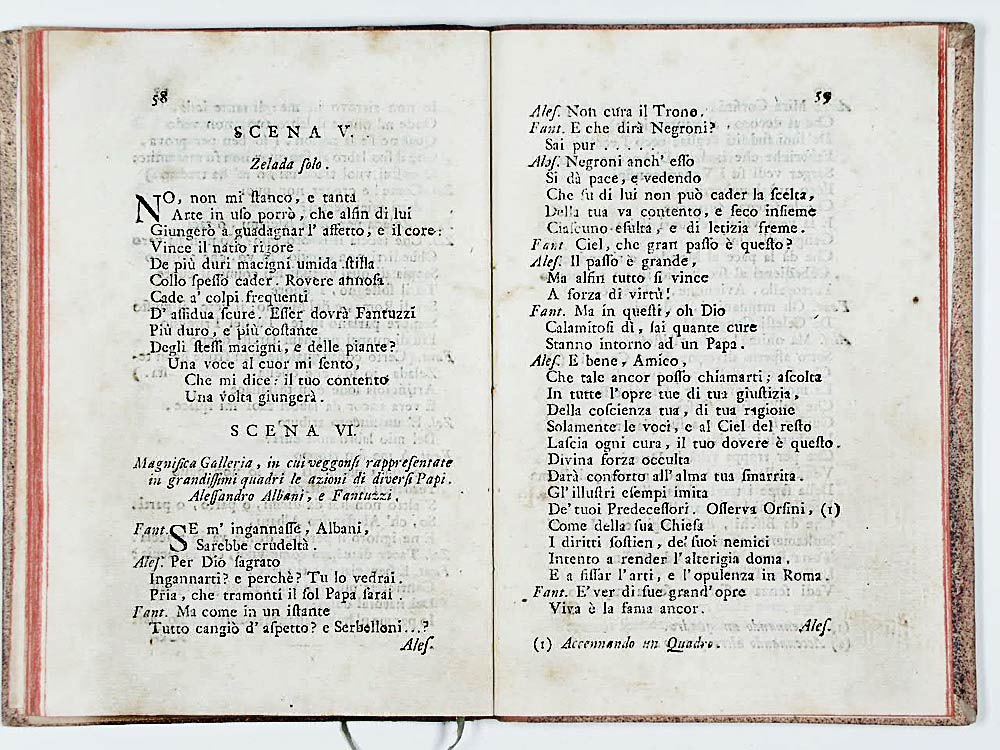 58
SCENA V.
Zelada ſolo.
NO, non mi ſtanco, e tanta
Arte in uſo porrò, che alfin di lui
Giungerò a guadagnar l'affetto, e il core:
Vince il natìo rigore
De più duri macigni umida ſtilla
Collo ſpeſſo cader. Rovere annoſa
Cade a' colpi frequenti
D'aſſidua ſcure. Eſſer dovrà Fantuzzi
Più duro, e più coſtante
Degli ſteſſi macigni, e delle piante?
Una voce al cuor mi ſento,
Che mi dice: il tuo contento
Una volta giungerà.
SCENA VI.
Magnifica Galleria, in cui veggonſi rappreſentate
in grandiſſimi quadri le azioni di diverſi Papi.
Aleſſandro Albani, e Fantuzzi.
Fant. SE m'ingannaſſe, Albani,
Sarebbe crudeltà.
Aleſ. Per Dio ſagrato
Ingannarti? e perchè? Tu lo vedrai.
Pria, che tramonti il ſol Papa ſarai.
Fant. Ma come in un iſtante
Tutto cangiò d'aſpetto? e Serbelloni...?
Aleſ.
59
Aleſ. Non cura il Trono.
Fant. E che dirà Negroni?
Sai pur . . . . . .
Aleſ. Negroni anch' eſſo
Si dà pace, e vedendo
Che ſu di lui non può cader la ſcelta,
Della tua va contento, e ſeco inſieme
Ciaſcuno eſulta, e di letizia freme.
Fant. Ciel, che gran paſſo è queſto?
Aleſ. Il paſſo è grande,
Ma alfin tutto ſi vince
A forza di virtù!
Fant. Ma in queſti, oh Dio
Calamitoſi dì, ſai quante cure
Stanno intorno ad un Papa.
Aleſ. E bene, Amico,
Che tale ancor poſſo chiamarti; aſcolta
In tutte l'opre tue di tua giuſtizia,
Della coſcienza tua, di tua ragione
Solamente le voci, e al Ciel del reſto
Laſcia ogni cura, il tuo dovere è queſto.
Divina forza occulta
Darà conforto all'alma tua ſmarrita.
Gl'illuſtri eſempi imita
De' tuoi Predeceſſori. Oſſerva Orſini, (1)
Come della ſua Chieſa
I diritti ſoſtien, de' ſuoi nemici
Intento a render l'alterigia doma,
E a fiſſar l'arti, e l'opulenza in Roma.
Fant. E' ver di ſue grand'opre
Viva è la fama ancor.
Aleſ.
(1) Accennando un Quadro.